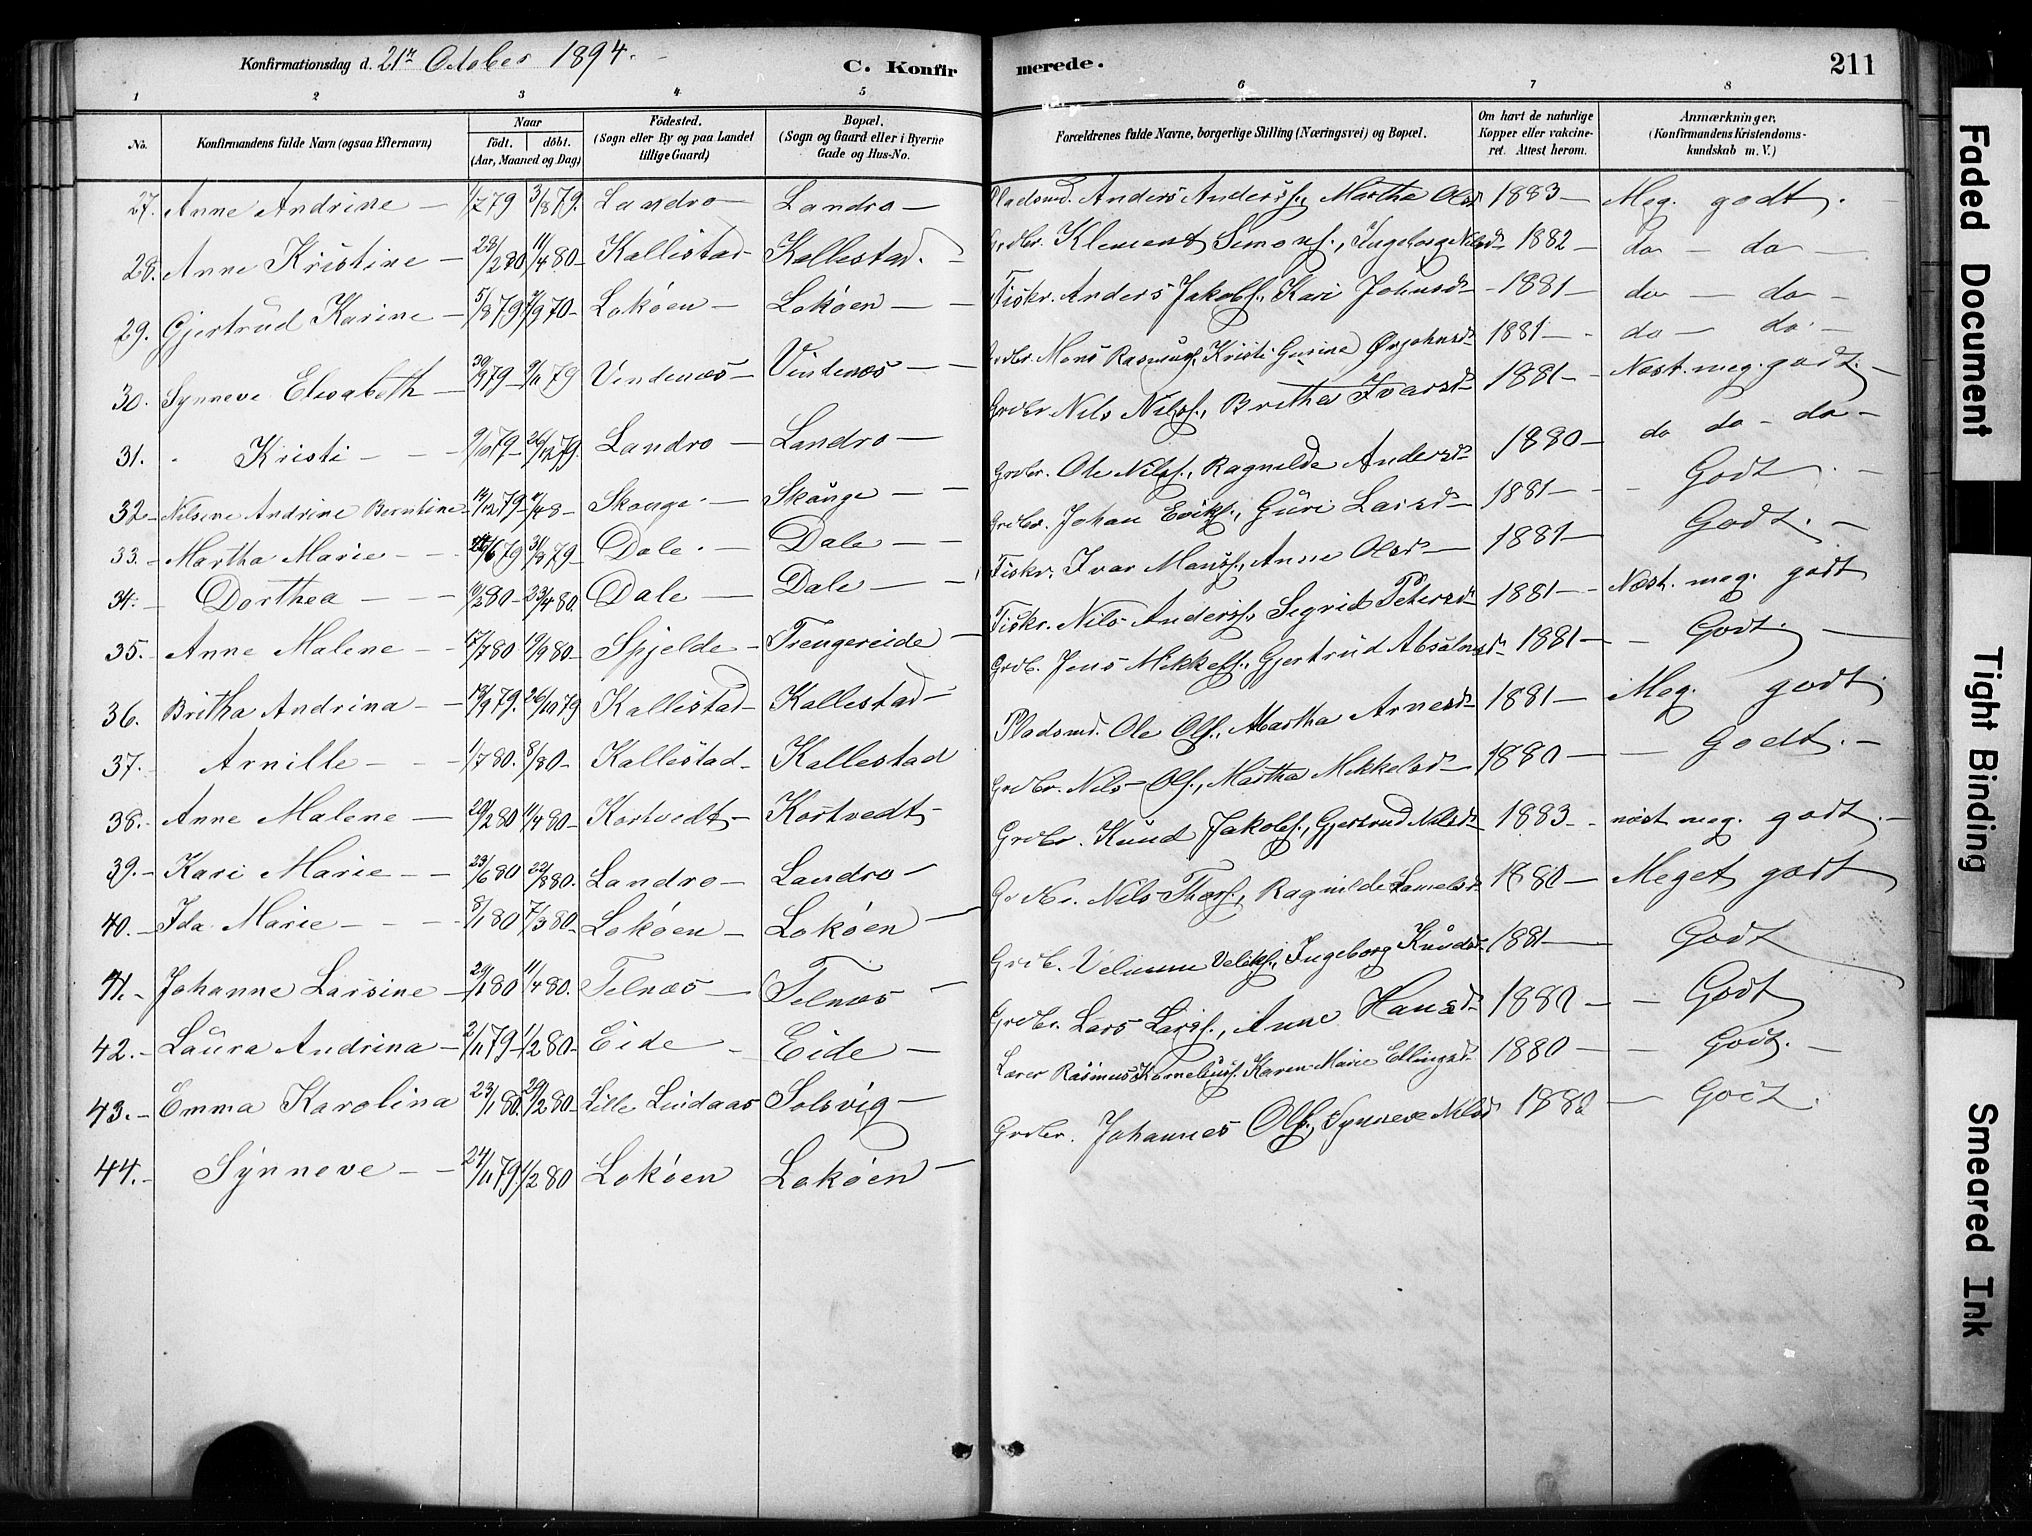 Konfirmationsdag d. 21de October 1894.
C. Konfirmerede.
211
1 2 3 4 5 6 7 8
No. Konfirmandens fulde Navn (ogsaa Efternavn) Naar födt. döbt. (Aar, Maaned og Dag) Födested. (Sogn eller By og paa Landet tillige Gaard) Bopæl. (Sogn og Gaard eller i Byerne Gade og Hus-No. Forældrenes fulde Navne, borgerlige Stilling (Næringsvei) og Bopæl. Om havt de naturlige Kopper eller vakcineret. Attest herom. Anmærkninger. (Konfirmandens Kristendomskundskab m. V.)
27. Anne Andrine — 1/7 79 3/8 79. Landro — Landro — Pladsmd. Anders Anderss., Martha Olsd 1883 — Meg. godt.
28. Anne Kristine — 28/2 80 11/4 80 — Kallestad — Kallestad. — Grdbr. Klement Simons., Ingeborg Nilsd 1882 — do — do —
29. Gjertrud Karine — 5/8 79 7/9 70 — Lokøen — Lokøen — Fiskr. Anders Jakobs., Kari Johnsd — 1881 — do — do —
30. Synneve Elisabeth — 30/9 79 — 9/11 79 Vindenæs — Vindenæs — Grdbr. Mons Rasmuss., Kristi Gurine Ørjahnsd 1881 — do — do —
31. Kristi — — 9/10 79 — 26/12 79. Landro — Landro — Grdbr. Nils Nilss., Britha Ivarsd 1881 — Næst. meg. godt. —
32 — Nilsine Andrine Berntine — 14/12 79 — Skoage — Skånge — — Grdbr. Ole Nilss., Ragnilde Andersd 1880 — do do — do —
33. — Martha Marie — — 31/8 79 — Dale. — Dale — — Grdbr. Johan Eriks., Guri Larsd 1881 — — Godt. —
34. — Dorthea — — — 80 — 23/4 80. Dale — Dale — — Fiskr. Ivar Monss., Anne Olsd — 1881 — Godt. —
35. — Anne Malene — — 17/7 80 19/9 80 — Spjelde — Trengereide — Fiskr. Nils Anderss., Segrid Petersd 1881 — — Næst. meg. godt
36. Britha Andrina — — 18/9 79. 26/10 79 Kallestad — Kallestad — Grdb. Jens Mikkels., Gjertrud Absalonsd — 1881 — — Godt. —
37. — Arnille — — 1/7 80. 8/80 — Kallestad — Kallestad Pladsmd. Ole Ols., Martha Arnesd 1881 — Meg. godt.
38. — Anne Malene — 20/2 80 11/4 80 — Kortvedt — Kortvedt — Grdbr. Nils Ols., Martha Mikkelsd — 1880 — — Godt. —
39. — Kari Marie — — 23/6 80 22/8 80. Landro — Landro — Grdbr. Knud Jakobs., Gjertrud Nilsd 1883 — næst meg. godt. —
40. — Ida Marie — — — 8/1 80 7/3 80 — Lokøen — Lokøen — Nils Thors., Ragnilde Samelsd 1880 — Meget godt
41. — Johanne Larsine — 29/1 80 11/4 80. Telnæs — Telnæs — Grdb. Ingeborg Knudsd — 1881 — Godt
42. — Laura Andrina — 2/11 79 — 1/2 80 — Eide — Eide — Grdbr. Lars Larss., Anne Hansd 1880 — — Godt
43. — Emma Karolina 23/1 80. 29/2 80 — Lille Lindaas Solsvig — Lærer Rasmus Korneliuss. Karen Marie Ellingsd. 1880 — — Godt. —
44. — Synneve — — 24/11 79 1/2 80 Lokøen Lokøen — Grdbr. Johannes Ols., Synneve Nilsd 1880 — Godt.
Faded Document
Tight Binding
Smeared Ink